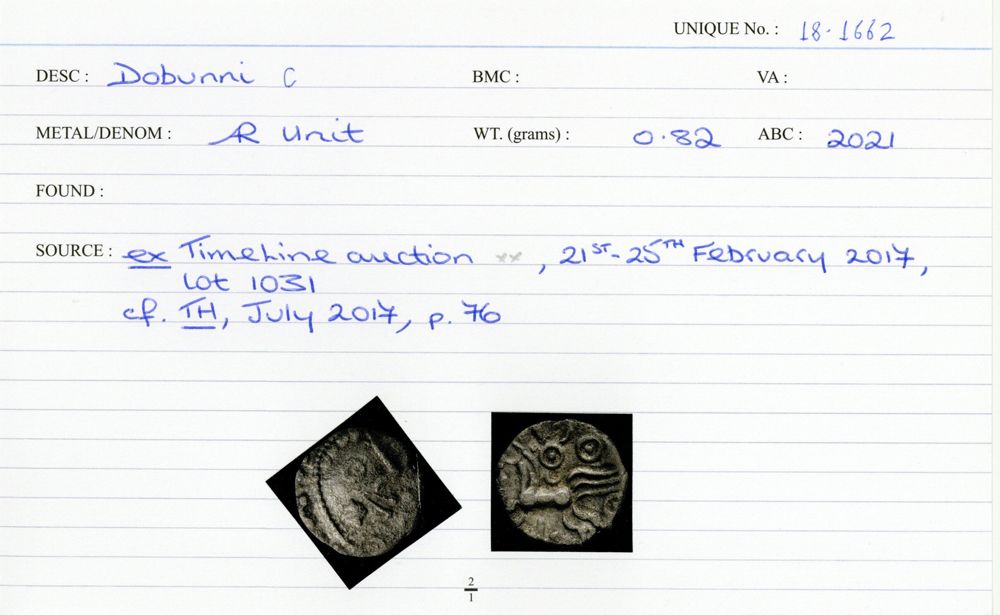 UNIQUE No. : 18.1662
DESC : Dobunni C BMC : VA :
METAL/DENOM : AR Unit WT. (grams) : 0.82 ABC : 2021
FOUND :
SOURCE : ex Timeline auction xx, 21ST-25TH February 2017,
Lot 1031
cf. TH, July 2017, p. 76
2
1